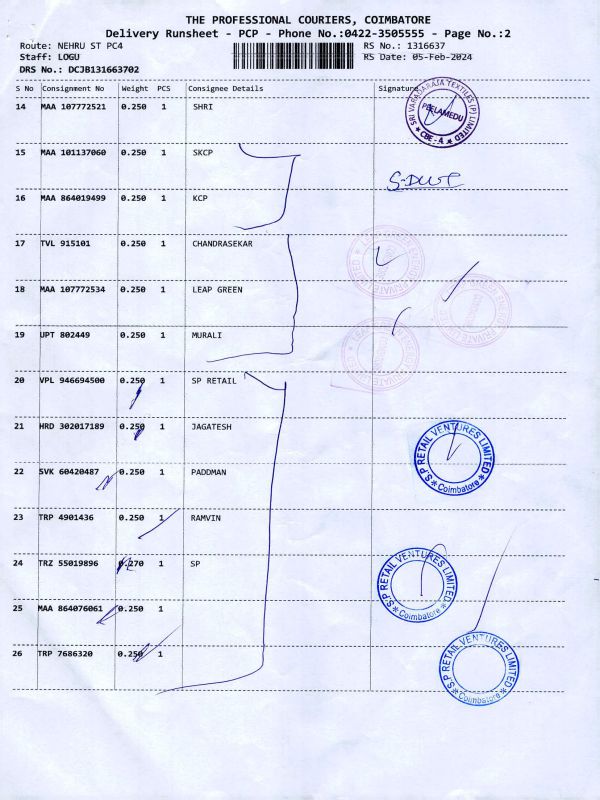 THE PROFESSIONAL COURIERS, COIMBATORE
Delivery Runsheet - PCP - Phone No.:0422-3505555 - Page No.:2
Route: NEHRU ST PC4 RS No.: 1316637
Staff: LOGU RS Date: 05-Feb-2024
DRS No.: DCJB131663702
S No Consignment No Weight PCS Consignee Details Signature
14 MAA 107772521 0.250 1 SHRI
SRI VARADARAJA TEXTILES (P) LIMITED
PEELAMEDU
CBE - 4
15 MAA 101137060 0.250 1 SKCP
16 MAA 864019499 0.250 1 KCP
17 TVL 915101 0.250 1 CHANDRASEKAR
18 MAA 107772534 0.250 1 LEAP GREEN
19 UPT 802449 0.250 1 MURALI
20 VPL 946694500 0.250 1 SP RETAIL
21 HRD 302017189 0.250 1 JAGATESH
S.P RETAIL VENTURES LIMITED
Coimbatore
22 SVK 60420487 0.250 1 PADDMAN
23 TRP 4901436 0.250 1 RAMVIN
24 TRZ 55019896 0.270 1 SP
S.P RETAIL VENTURES LIMITED
Coimbatore
25 MAA 864076061 0.250 1
26 TRP 7686320 0.250 1
S.P RETAIL VENTURES LIMITED
Coimbatore